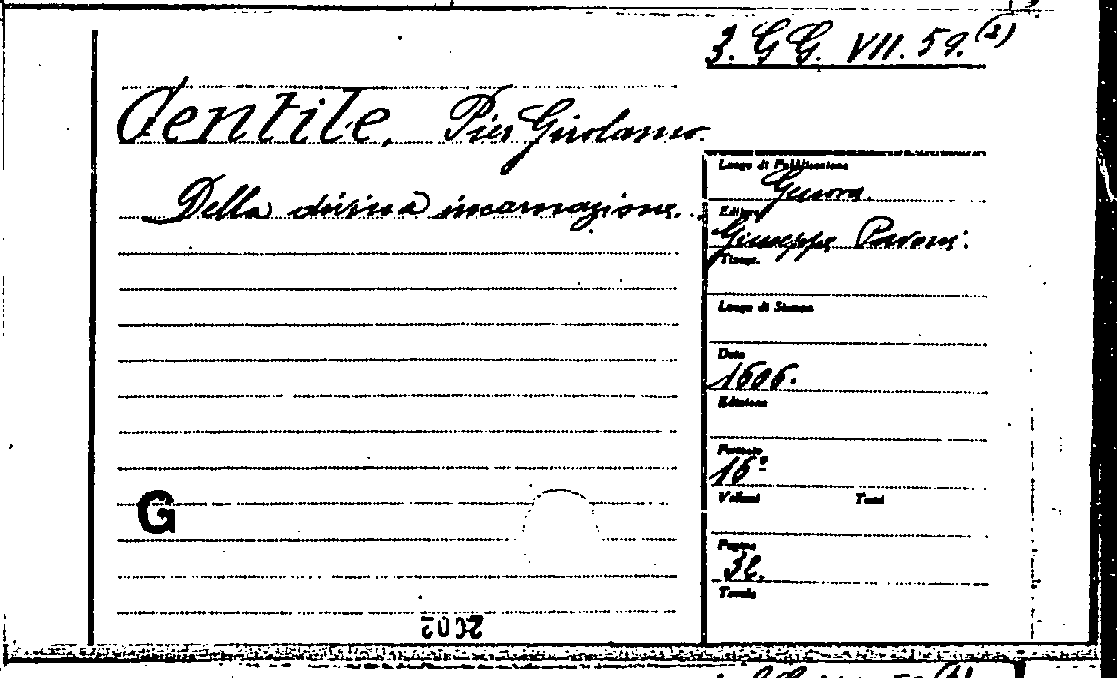 3. GG. VII. 59.(2)
Gentile, Pier Girolamo.
Della divina incarnazione.
Luogo di Pubblicazione
Genova.
Editore
Giuseppe Pavoni.
Tipogr.
Luogo di Stampa
Data
1606.
Edizione
Formato
16°
Volumi Tomi
Pagine
32.
Tavole
G
2002